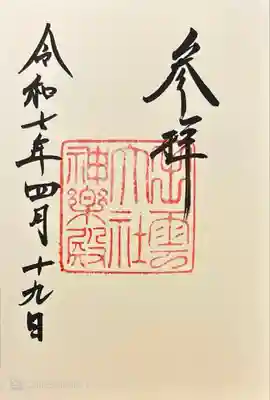 参拝
出雲
大社
神楽殿
令和七年四月十九日